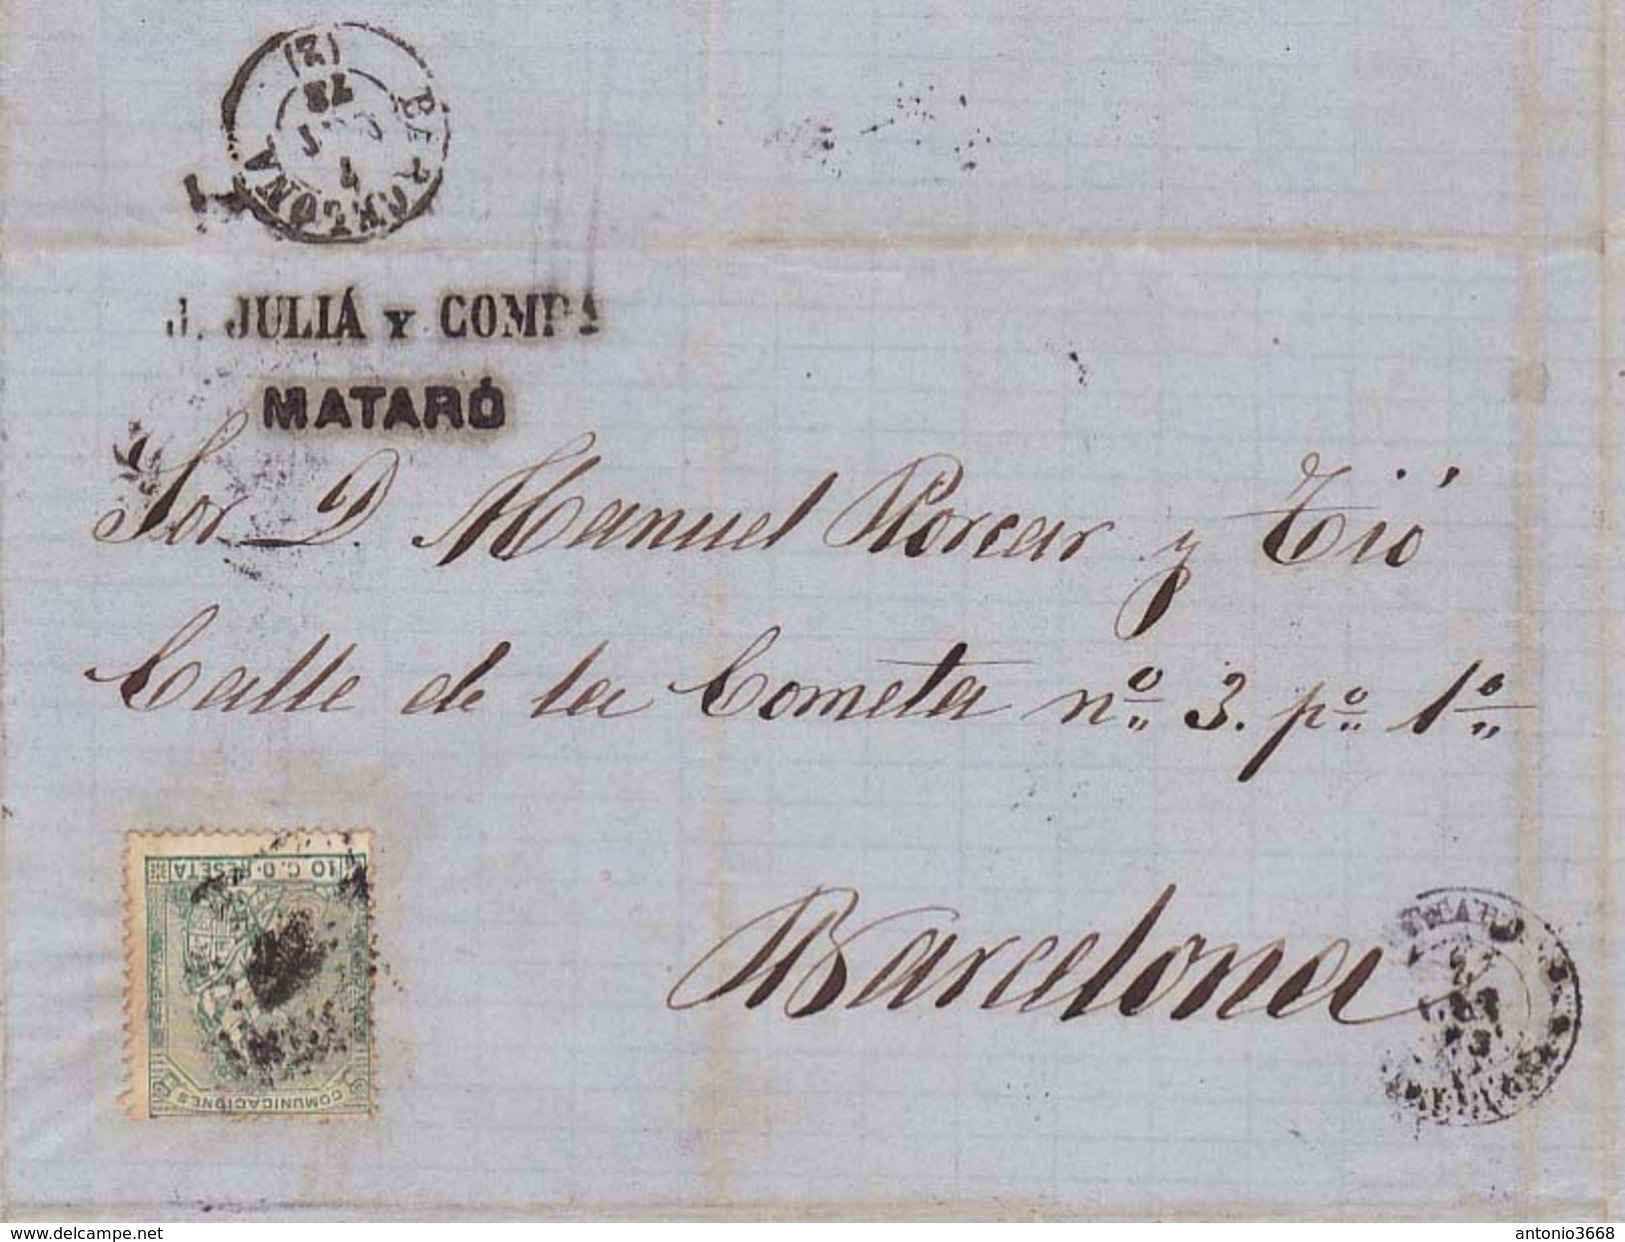 BARCELONA
(2)
J. JULIÁ Y COMPA
MATARÓ
Sor D. Manuel Porcar y Tió
Calle de la Cometa nº 3. pº 1º
Barcelona
10 C.D. PESETA
COMUNICACIONES
antonio3668